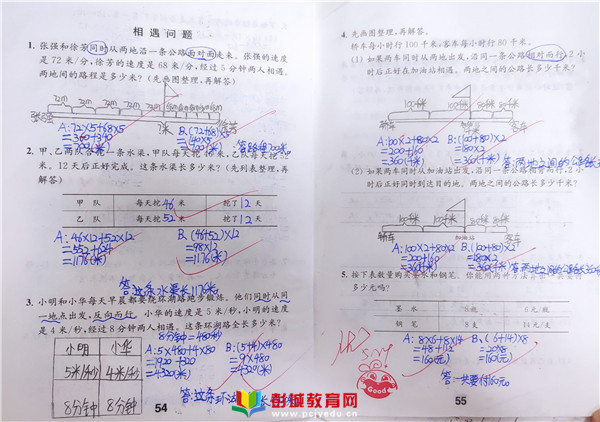 相 遇 问 题
1. 张强和徐芳同时从两地沿一条公路面对面走来。张强的速度
是 72 米/分，徐芳的速度是 68 米/分，经过 5 分钟两人相遇。
两地间的路程是多少米？(先画图整理，再解答)
72m 72m 72m 72m 72m
张强
?米
A: 72×5+68×5
=360+340
=700(米)
B. (72+68)×5
=140×5
=700(米)
2. 甲、乙两队合挖一条水渠，甲队每天挖 46 米，乙队每天挖 52
米。12 天后正好完成。这条水渠长多少米？(先列表整理，再
解答)
甲 队 每天挖 46 米 挖了 12 天
乙 队 每天挖 52 米 挖了 12 天
A: 46×12+52×12
=552+624
=1176(米)
B. (46+52)×12
=98×12
=1176(米)
答:这条水渠长1176米。
3. 小明和小华每天早晨都要绕环湖路跑步锻炼。他们同时从同
一地点出发，反向而行。小华的速度是 5 米/秒，小明的速度
是 4 米/秒，经过 8 分钟两人相遇。这条环湖路全长多少米？
8分钟=480秒
小明 小华
5米/秒 4米/秒
8分钟 8分钟
A: 5×480+4×80
=4320(米)
B: (5+4)×480
=9×480
=4320(米)
答:这条环湖
54
4. 先画图整理，再解答。
轿车每小时行 100 千米，客车每小时行 80 千米。
(1) 如果两车同时从两地出发，沿同一条公路相对而行，2 小
时后正好在加油站相遇。两地之间的公路长多少千米？
100千米 100千米 80千米 80千米
轿车 客车
A: 100×2+80×2
=200+160
=360(千米)
B: (100+80)×2
=180×2
=360(千米)
答:两地之间的公路长
(2) 如果两车同时从加油站出发，沿同一条公路相背而行，2 小
时后正好同时到达目的地。两地之间的公路长多少千米？
轿车 加油站 客车
A: 100×2+80×2
=200+160
=360(千米)
B: (100+80)×2
=180×2
=360(千米)
答:两地之间的公路长
5. 按下表数量购买墨水和钢笔。你能用两种方法
多少元吗？
墨 水 8 瓶 6 元/瓶
钢 笔 8 支 14 元/支
A: 8×6+8×14
=48+112
=160(元)
B, (6+14)×8
=20×8
=160(元)
答:一共要付160元。
Good
55
彭城教育网
www.pcjyedu.com